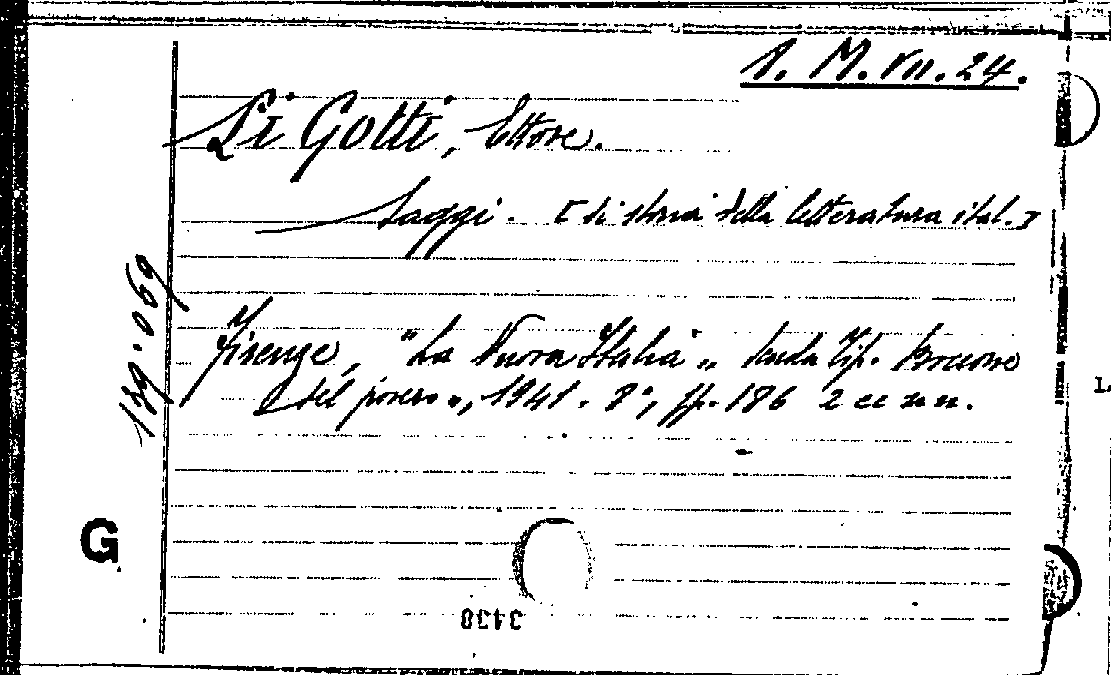 1. M. VII. 24.
Li Gotti, Ettore.
Saggi. [di storia della letteratura ital.]
Firenze, "La Nuova Italia„ Tip. Boccone
del povero„, 1941. 8°, pp. 186 2 cc nn.
189.069
G
3438